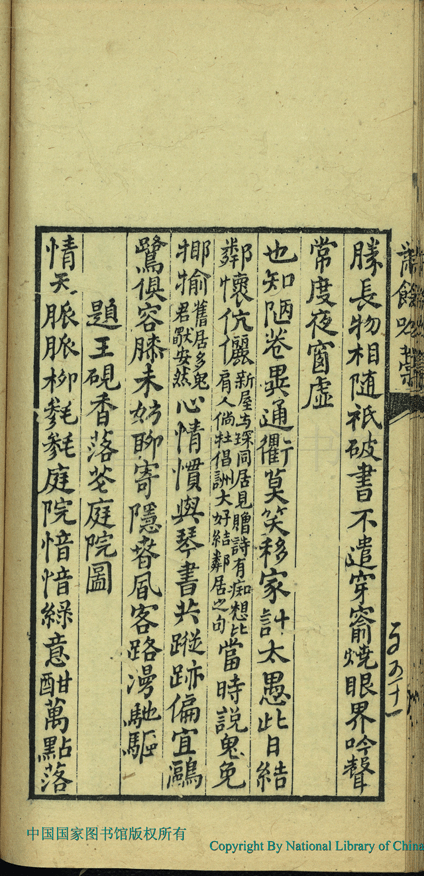 勝長物相隨祇破書不遣穿窬燒眼界吟聲
常度夜窗虛
也知陋巷異通衢莫笑移家計太愚此日結
鄰懷伉儷新屋与琛同居見贈詩有痴想比肩人倘壯倡詶大好結鄰居之句當時説鬼免
揶揄舊居多鬼君獸安然心情慣與琴書共蹤跡偏宜鷗
鷺俱容膝未妨聊寄隱脊風客路漫馳驅
題王硯香落花庭院圖
情天脈脈柳毿毿庭院愔愔綠意酣萬點落
中国国家图书馆版权所有
Copyright By National Library of China